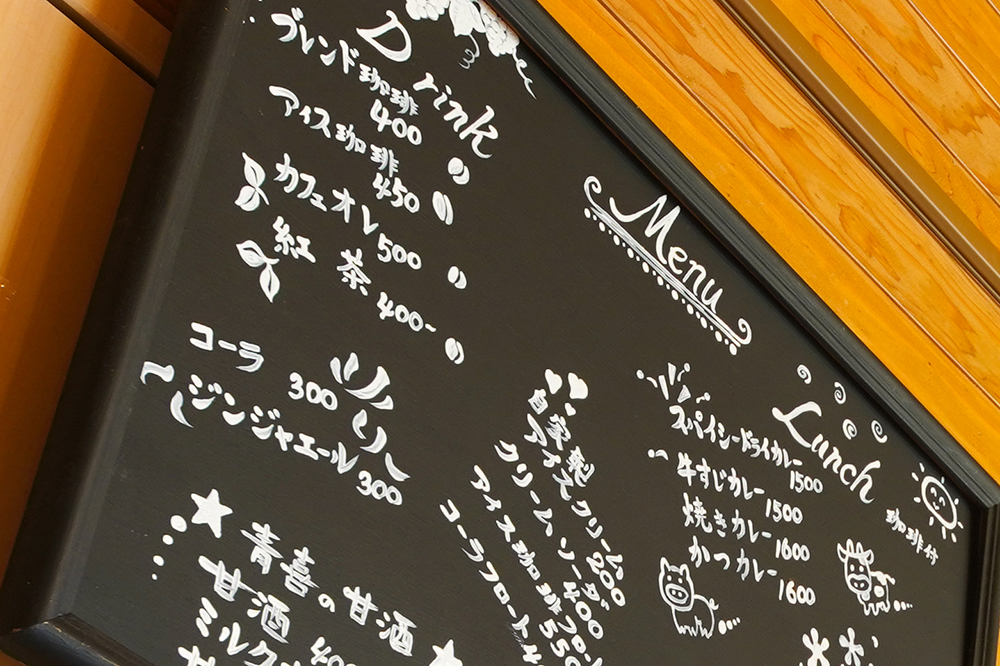 Drink
ブレンド珈琲 400
アイス珈琲 450
カフェオレ 500
紅茶 400-
コーラ 300
ジンジャエール 300
青喜の甘酒
甘酒 400
ミルク
Menu
自家製
アイスクリーム 200
クリームソーダ 400
アイス珈琲フロート 550
コーラフロート
Lunch
珈琲付
スパイシードライカレー 1500
牛すじカレー 1500
焼きカレー 1600
かつカレー 1600